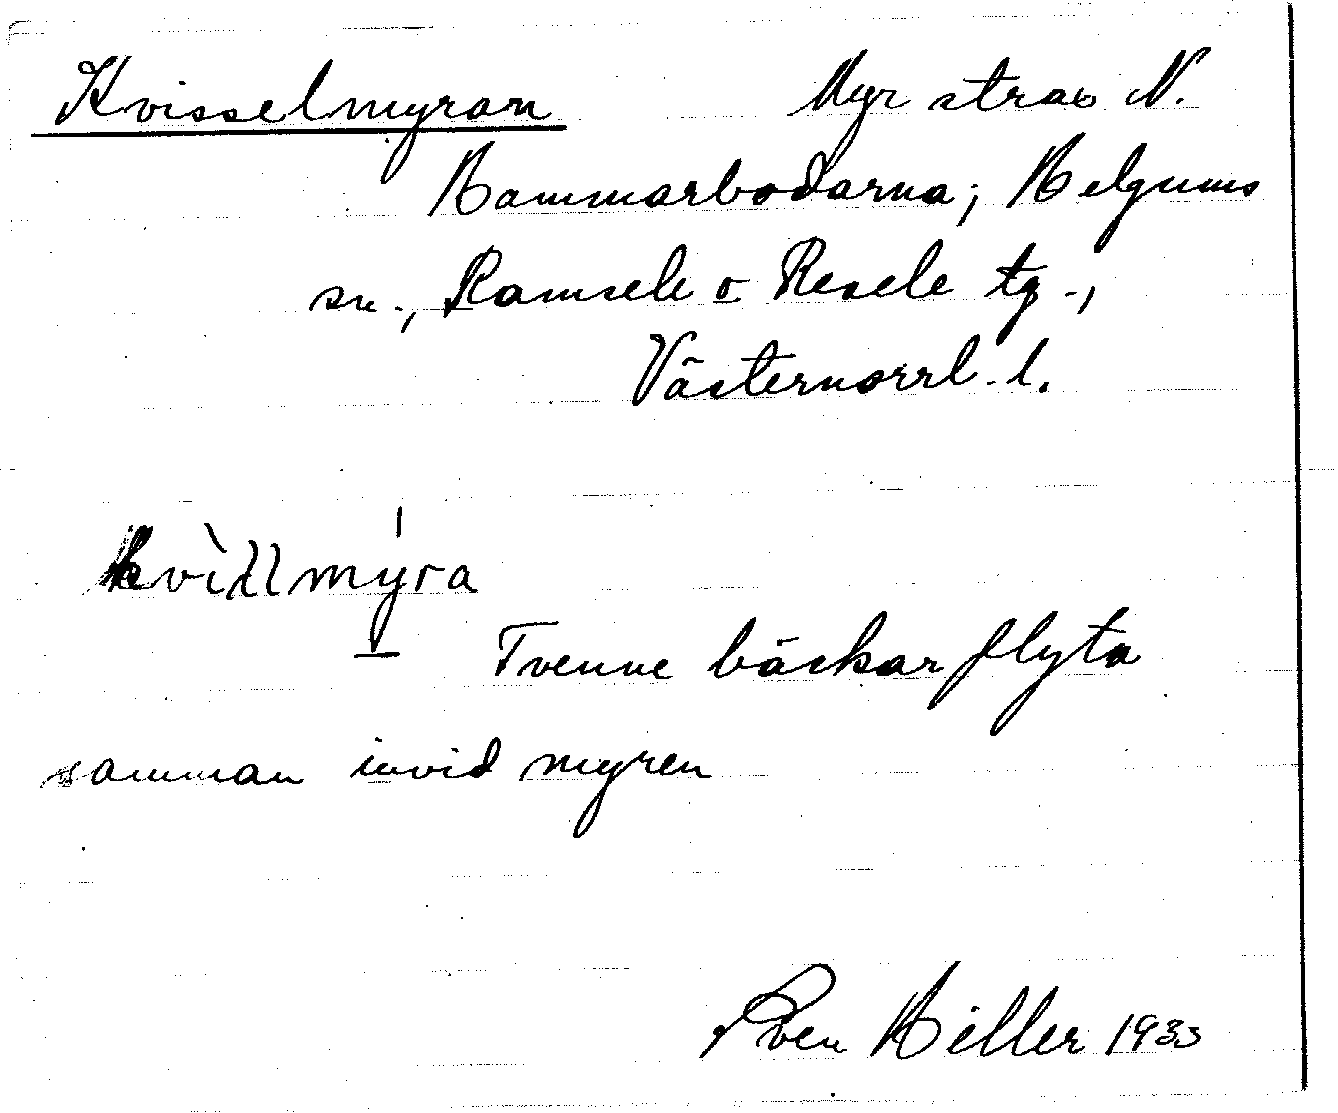 Kvisselmyran Myr strax N.
Hammarbodarna; Helgums
sn., Ramsele o Resele tg.,
Västernorrl. l.
Tvenne bäckar flyta
samman invid myren
Sven Hiller 1933